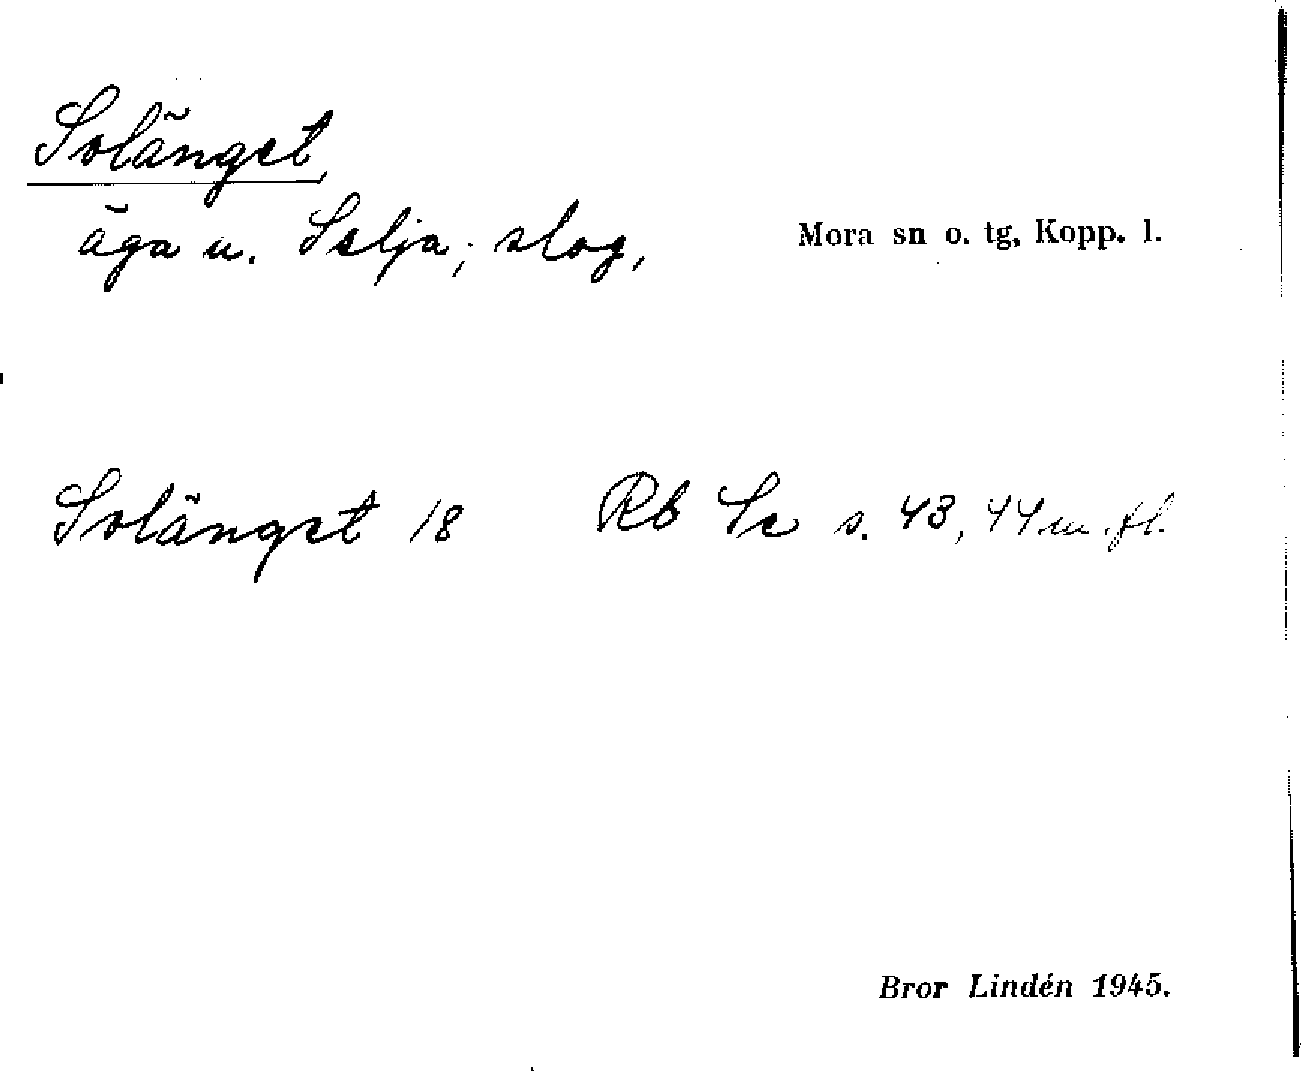 Solänget,
äga u. Selja; slog,
Mora sn o. tg, Kopp. l.
Solänget 18 Rb Se s. 43, 44 m. fl.
Bror Lindén 1945.